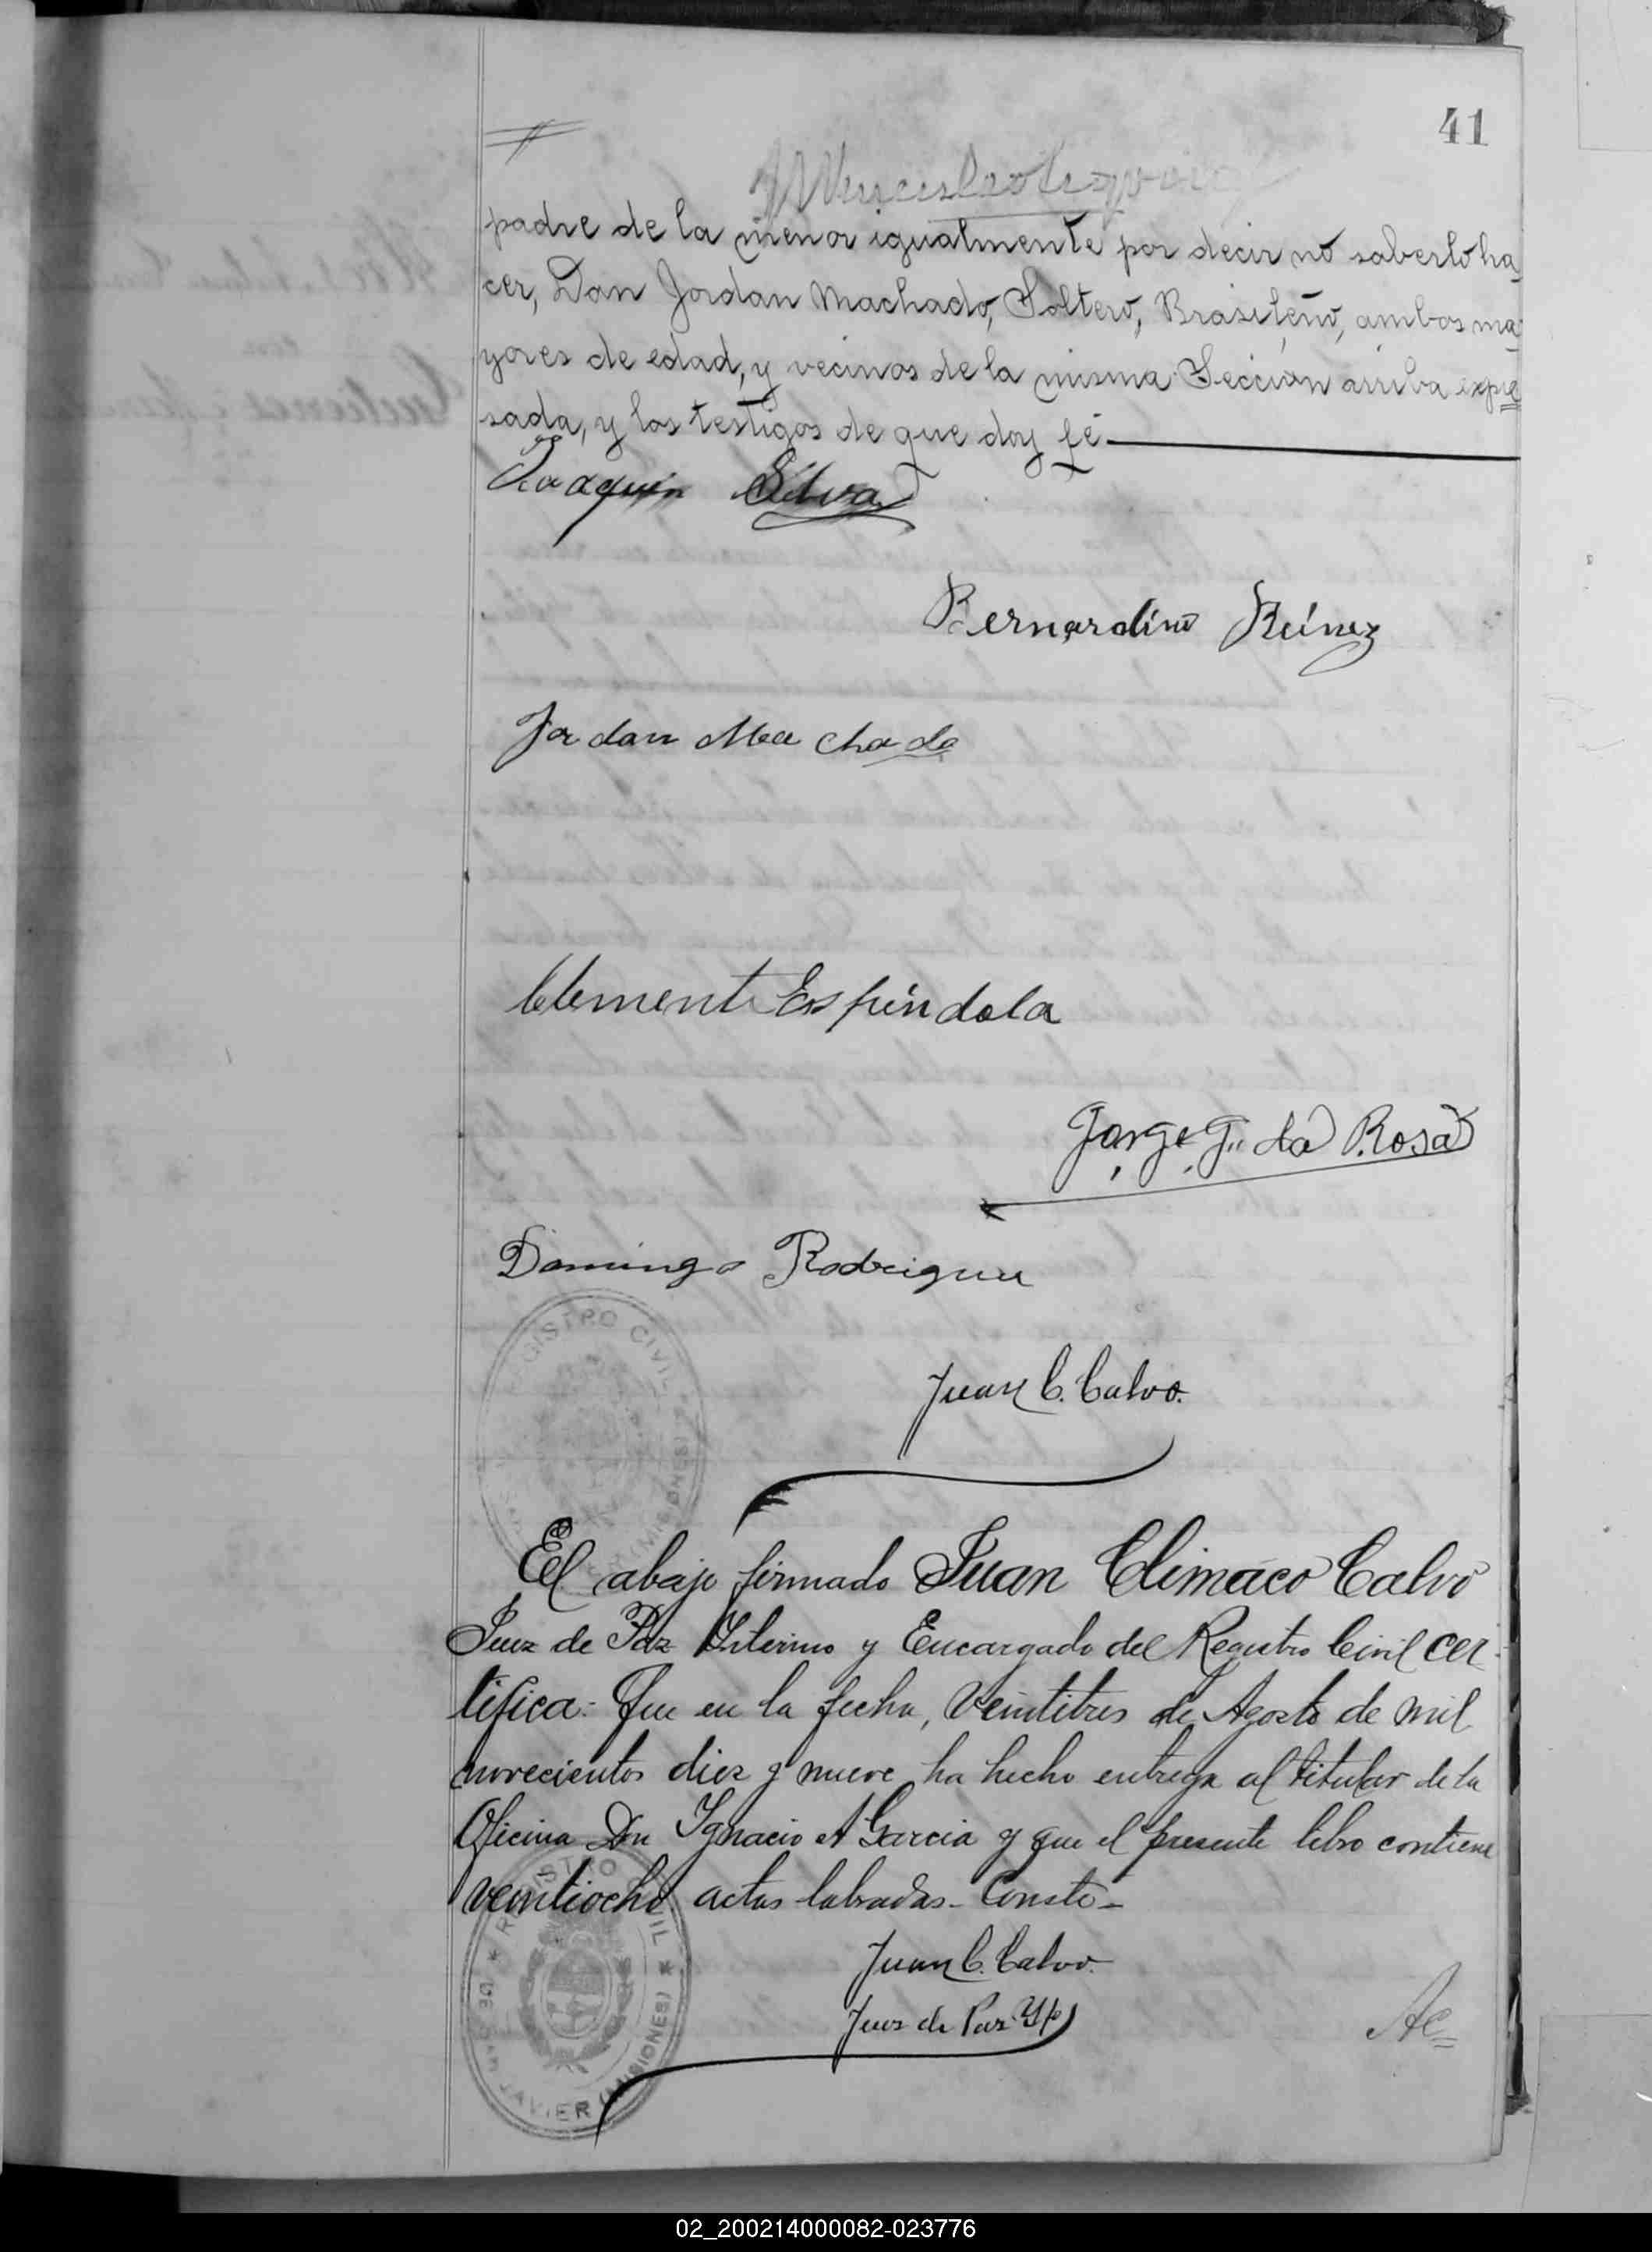 41
padre de la menor igualmente por decir no saberlo ha
cer, Don Jordan Machado, Soltero, Brasileño, ambos ma
yores de edad, y vecinos de la misma Sección arriba expre
sada, y los testigos de que doy fé
Joaquin Silva
Bernardino
Jordan Machado
Clemente Espíndola
Jorge J. da Rosa
Domingo Rodriguez
REGISTRO CIVIL
(MISIONES)
Juan C. Calvo.
El abajo firmado Juan Climaco Calvo
Juez de Paz Interino y Encargado del Registro Civil cer
tifica: Que en la fecha, Veintitres de Agosto de mil
novecientos diez y nueve ha hecho entrega al titular de la
Oficina Don Ignacio A Garcia y que el presente libro contiene
veintiocho actas labradas. Conste
REGISTRO CIVIL
DE SAN JAVIER (MISIONES)
Juan C. Calvo.
Juez de Paz
02_200214000082-023776